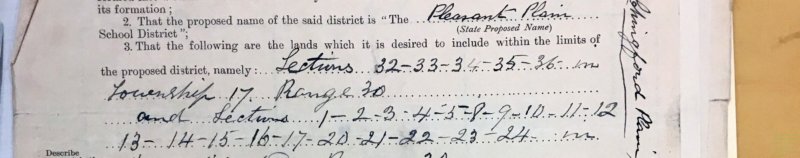 its formation ;
2. That the proposed name of the said district is "The Pleasant Plain
(State Proposed Name)
School District";
3. That the following are the lands which it is desired to include within the limits of
the proposed district, namely: Sections 32-33-34-35-36 in
Township 17 Range 20
and Sections 1-2-3-4-5-8-9-10-11-12
13-14-15-16-17-20-21-22-23-24 in
Describe
Plain